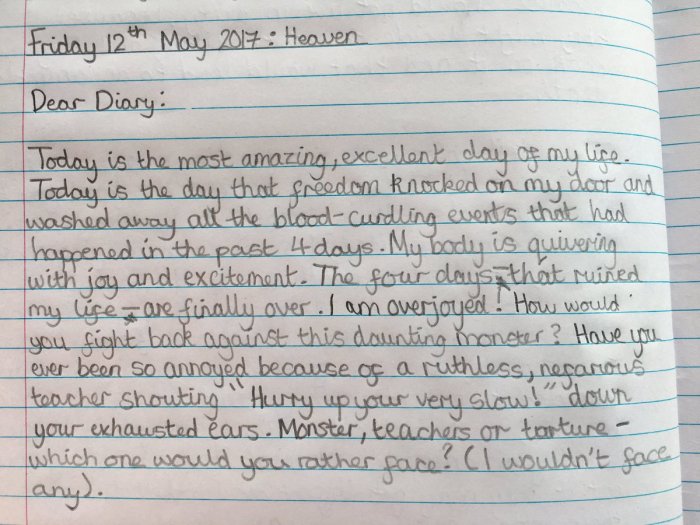 Friday 12th May 2017 : Heaven
Dear Diary:
Today is the most amazing, excellent day of my life.
Today is the day that freedom knocked on my door and
washed away all the blood-curdling events that had
happened in the past 4 days. My body is quivering
with joy and excitement. The four days - that ruined
my life - are finally over. I am overjoyed! How would
you fight back against this daunting monster? Have you
ever been so annoyed because of a ruthless, nefarious
teacher shouting "Hurry up your very slow!" down
your exhausted ears. Monster, teachers or torture -
which one would you rather face? (I wouldn't face
any).